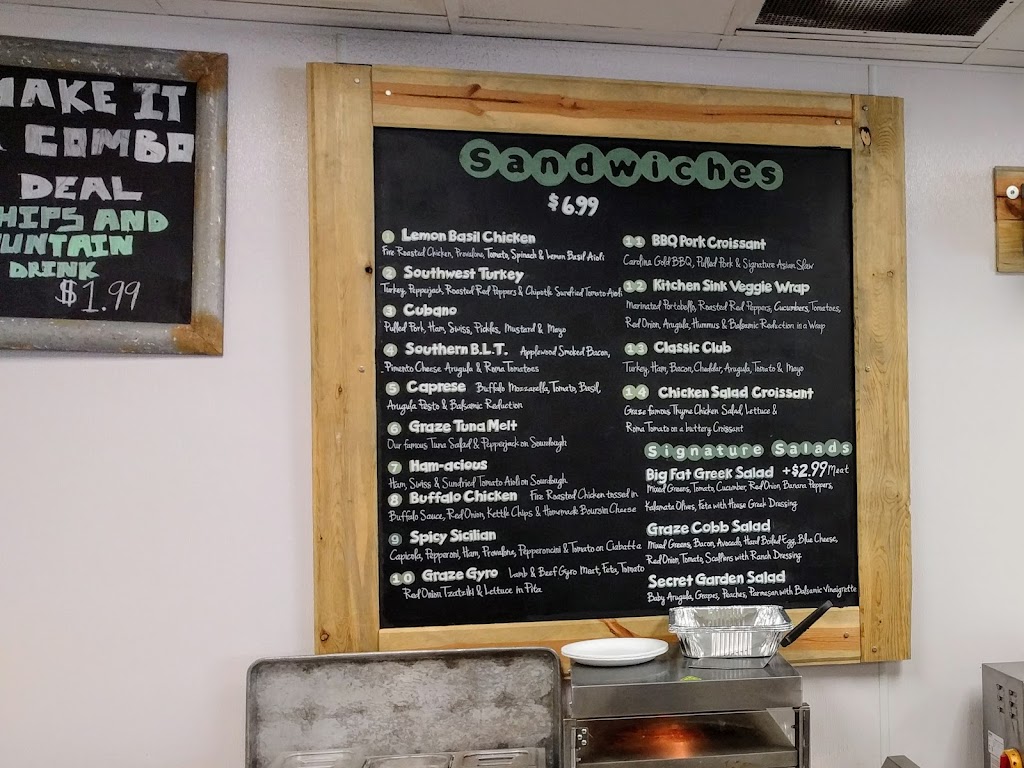 MAKE IT
COMBO
DEAL
CHIPS AND
UNTAIN
DRINK
$1.99
Sandwiches
$6.99
1 Lemon Basil Chicken
Fire Roasted Chicken, Provolone, Tomato, Spinach & Lemon Basil Aioli
2 Southwest Turkey
Turkey, Pepperjack, Roasted Red Peppers & Chipotle Sundried Tomato Aioli
3 Cubano
Pulled Pork, Ham, Swiss, Pickles, Mustard & Mayo
4 Southern B.L.T. Applewood Smoked Bacon,
Pimento Cheese Arugula & Roma Tomatoes
5 Caprese Buffalo Mozzarella, Tomato, Basil,
Arugula Pesto & Balsamic Reduction
6 Graze Tuna Melt
Our famous Tuna Salad & Pepperjack on Sourdough
7 Ham-acious
Ham, Swiss & Sundried Tomato Aioli on Sourdough
8 Buffalo Chicken Fire Roasted Chicken tossed in
Buffalo Sauce, Red Onion, Kettle Chips & Homemade Boursin Cheese
9 Spicy Sicilian
Capicola, Pepperoni, Ham, Provolone, Pepperoncini & Tomato on Ciabatta
10 Graze Gyro Lamb & Beef Gyro Meat, Feta, Tomato
Red Onion Tzatziki & Lettuce in Pita
11 BBQ Pork Croissant
Carolina Gold BBQ, Pulled Pork & Signature Asian Slaw
12 Kitchen Sink Veggie Wrap
Marinated Portobello, Roasted Red Peppers, Cucumbers, Tomatoes,
Red Onion, Arugula, Hummus & Balsamic Reduction in a Wrap
13 Classic Club
Turkey, Ham, Bacon, Cheddar, Arugula, Tomato & Mayo
14 Chicken Salad Croissant
Graze famous Thyme Chicken Salad, Lettuce &
Roma Tomato on a buttery Croissant
Signature Salads
Big Fat Greek Salad +$2.99 Meat
Mixed Greens, Tomato, Cucumber, Red Onion, Banana Peppers,
Kalamata Olives, Feta with House Greek Dressing
Graze Cobb Salad
Mixed Greens, Bacon, Avocado, Hard Boiled Egg, Blue Cheese,
Red Onion, Tomato, Scallions with Ranch Dressing
Secret Garden Salad
Baby Arugula, Grapes, Peaches, Parmesan with Balsamic Vinaigrette